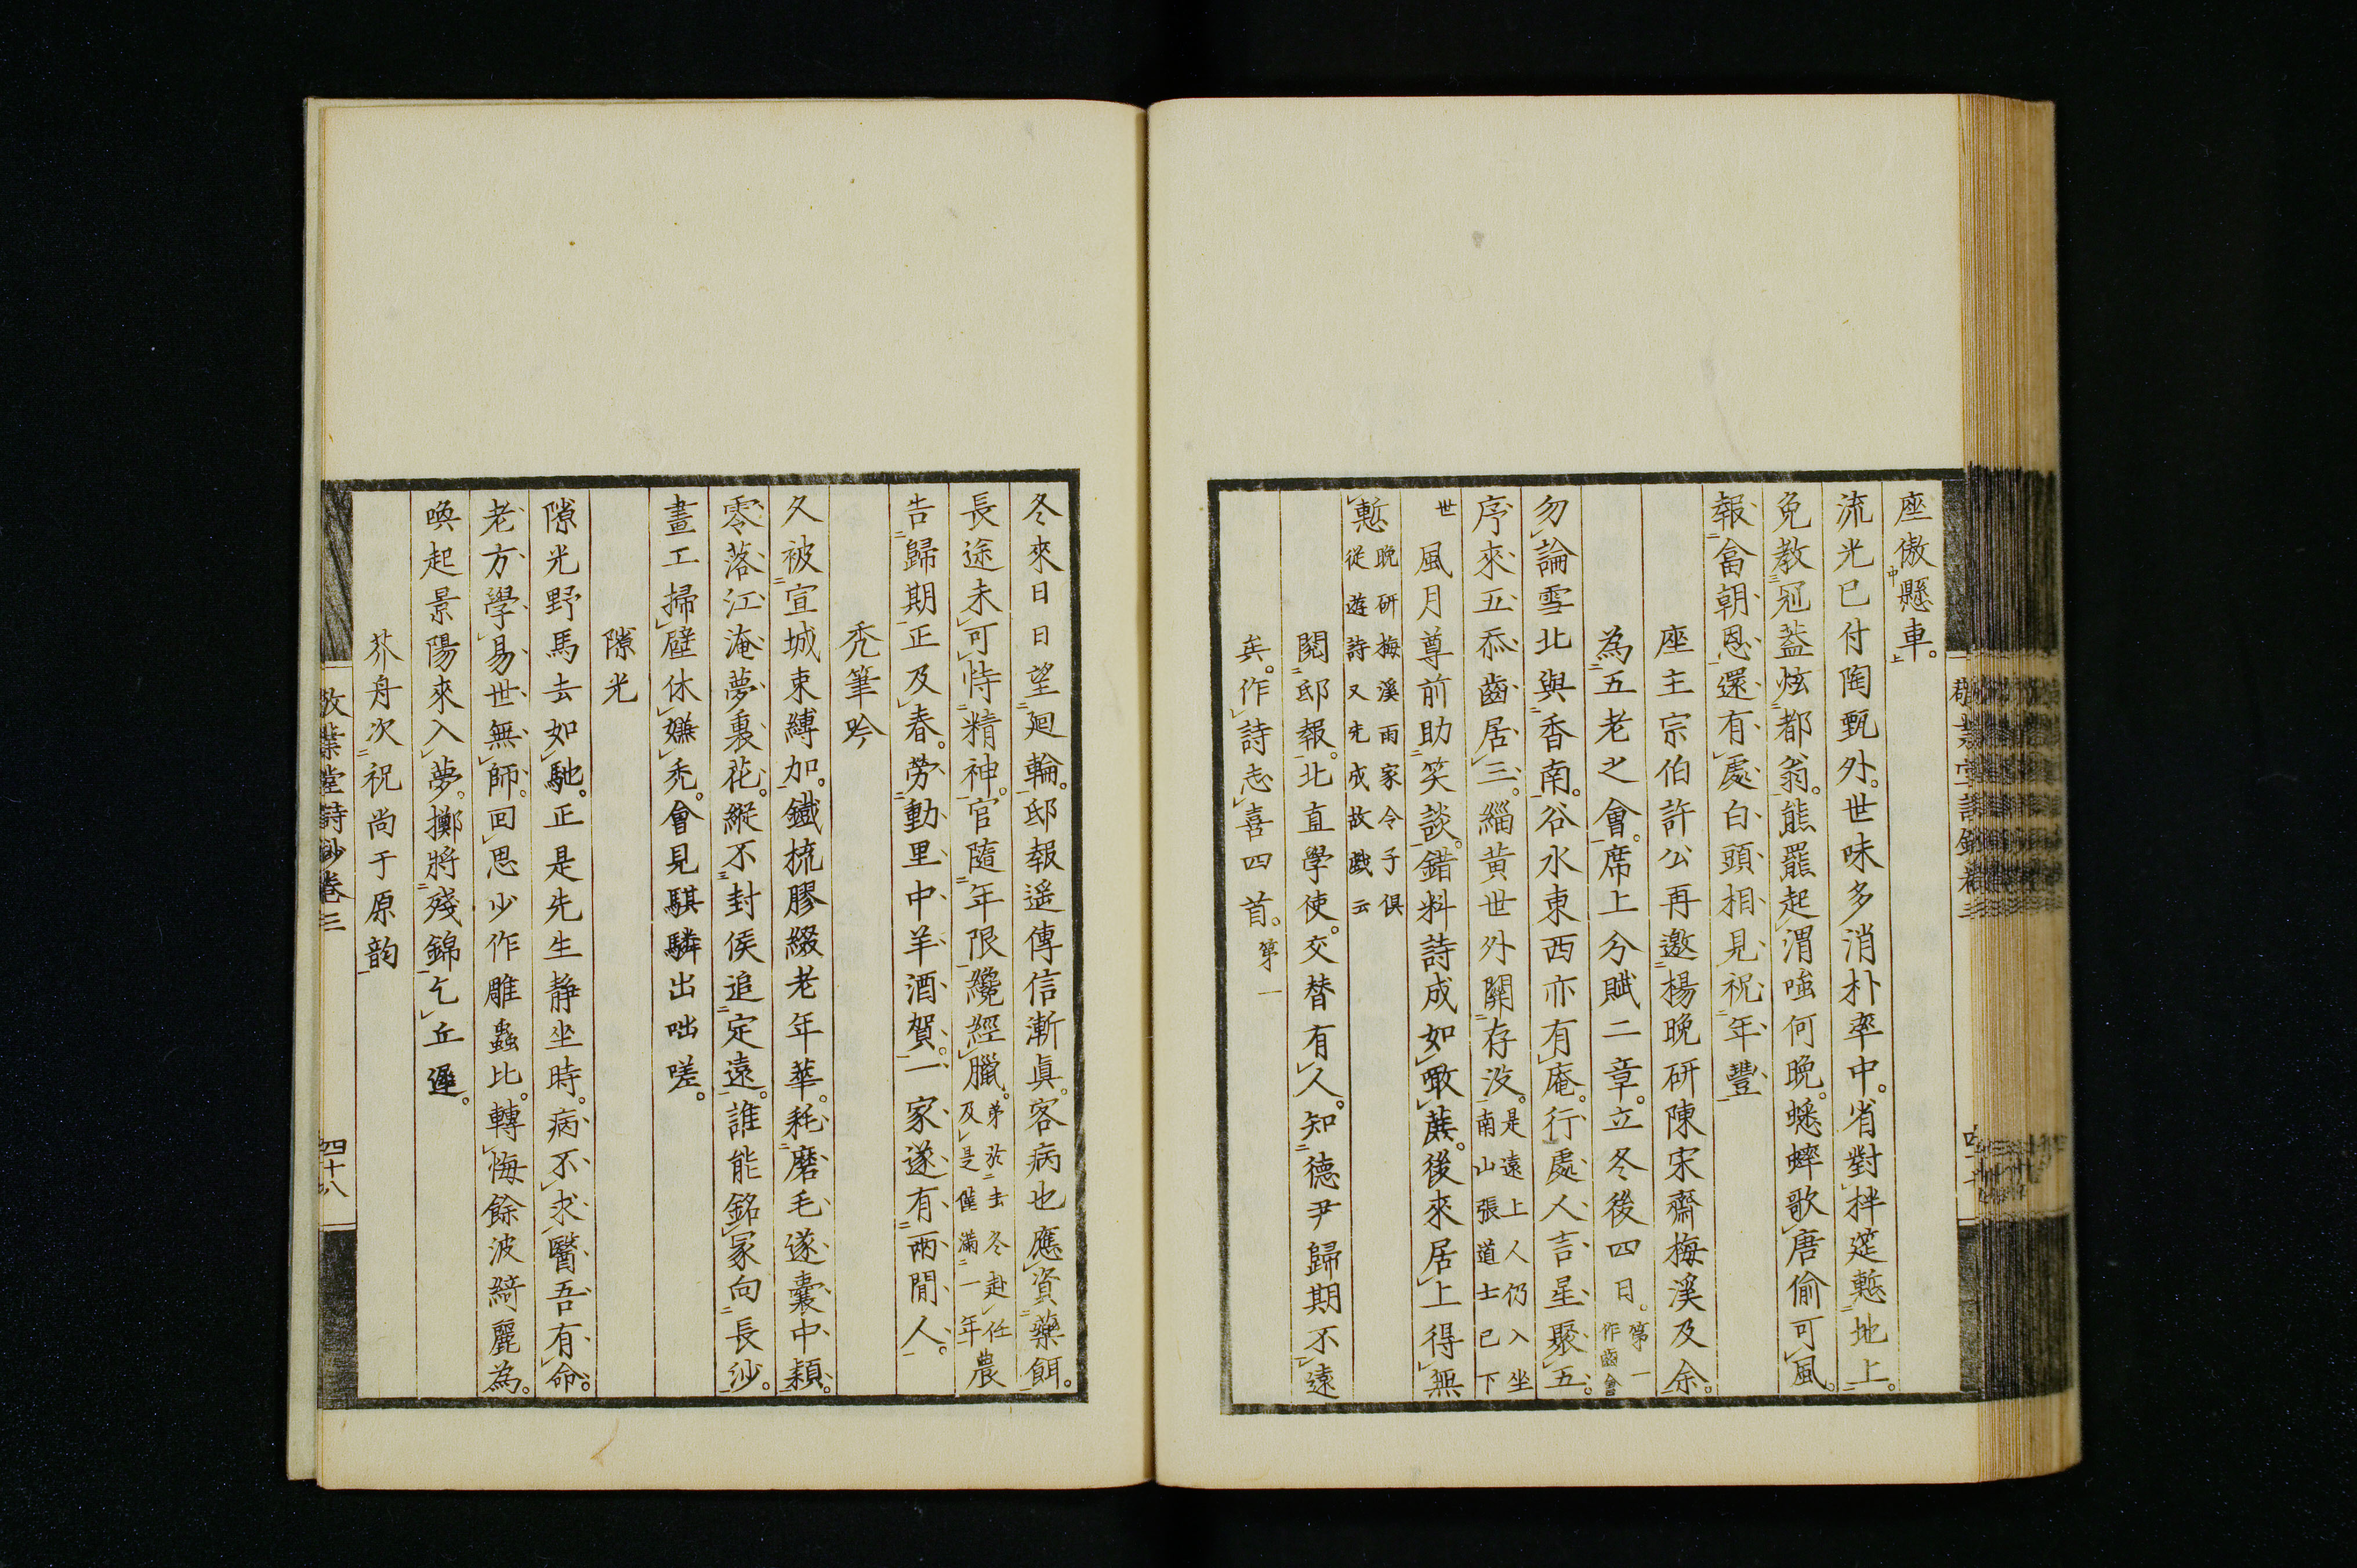 座傲懸車。
流光已付陶甄外。世味多消朴率中。省對拌筵慙地上。
免教冠蓋炫都翁。熊羆起渭嗤何晚。蟋蟀歌唐偷可風。
報畣朝恩還有處白頭相見祝年豐
座主宗伯許公再邀楊晚研陳宋齋梅溪及余。
為五老之會。席上分賦二章。立冬後四日。第一作齒會
勿論雪北與香南。谷水東西亦有庵。行處人言星聚五。
序來五忝齒居三。緇黃世外關存沒。是遠上人仍入坐南山張道士已下
世風月尊前助笑談。錯料詩成如噉蔗。後來居上得無
慙晚研梅溪兩家令子俱從遊詩又先成故戲云
閱邸報。北直學使。交替有人。知德尹歸期不遠
矣。作詩志喜四首。第一
冬來日日望廻輪。邸報遥傳信漸眞。客病也應資藥餌。
長途未可恃精神。官隨年限纔經臘。弟於去冬赴任及是僅滿一年農
告歸期正及春。勞動里中羊酒賀。一家遂有兩閒人。
禿筆吟
久被宣城束縛加。鐵梳膠綴老年華。耗磨毛遂囊中穎。
零落江淹夢裏花。縱不封侯追定遠。誰能銘冢向長沙。
畫工掃壁休嫌禿。會見騏驎出咄嗟。
隙光
隙光野馬去如馳。正是先生靜坐時。病不求醫吾有命。
老方學易世無師。回思少作雕蟲比。轉悔餘波綺麗為。
喚起景陽來入夢。擲將殘錦乞丘遲。
芥舟次祝尚于原韵
敬業堂詩鈔卷三
四十八